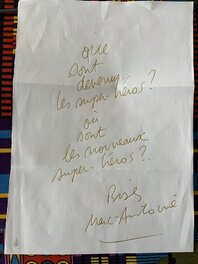 que
sont
devenus
les super-héros ?
où
sont
les nouveaux
super-héros ?
Bises
Marc-Antoine